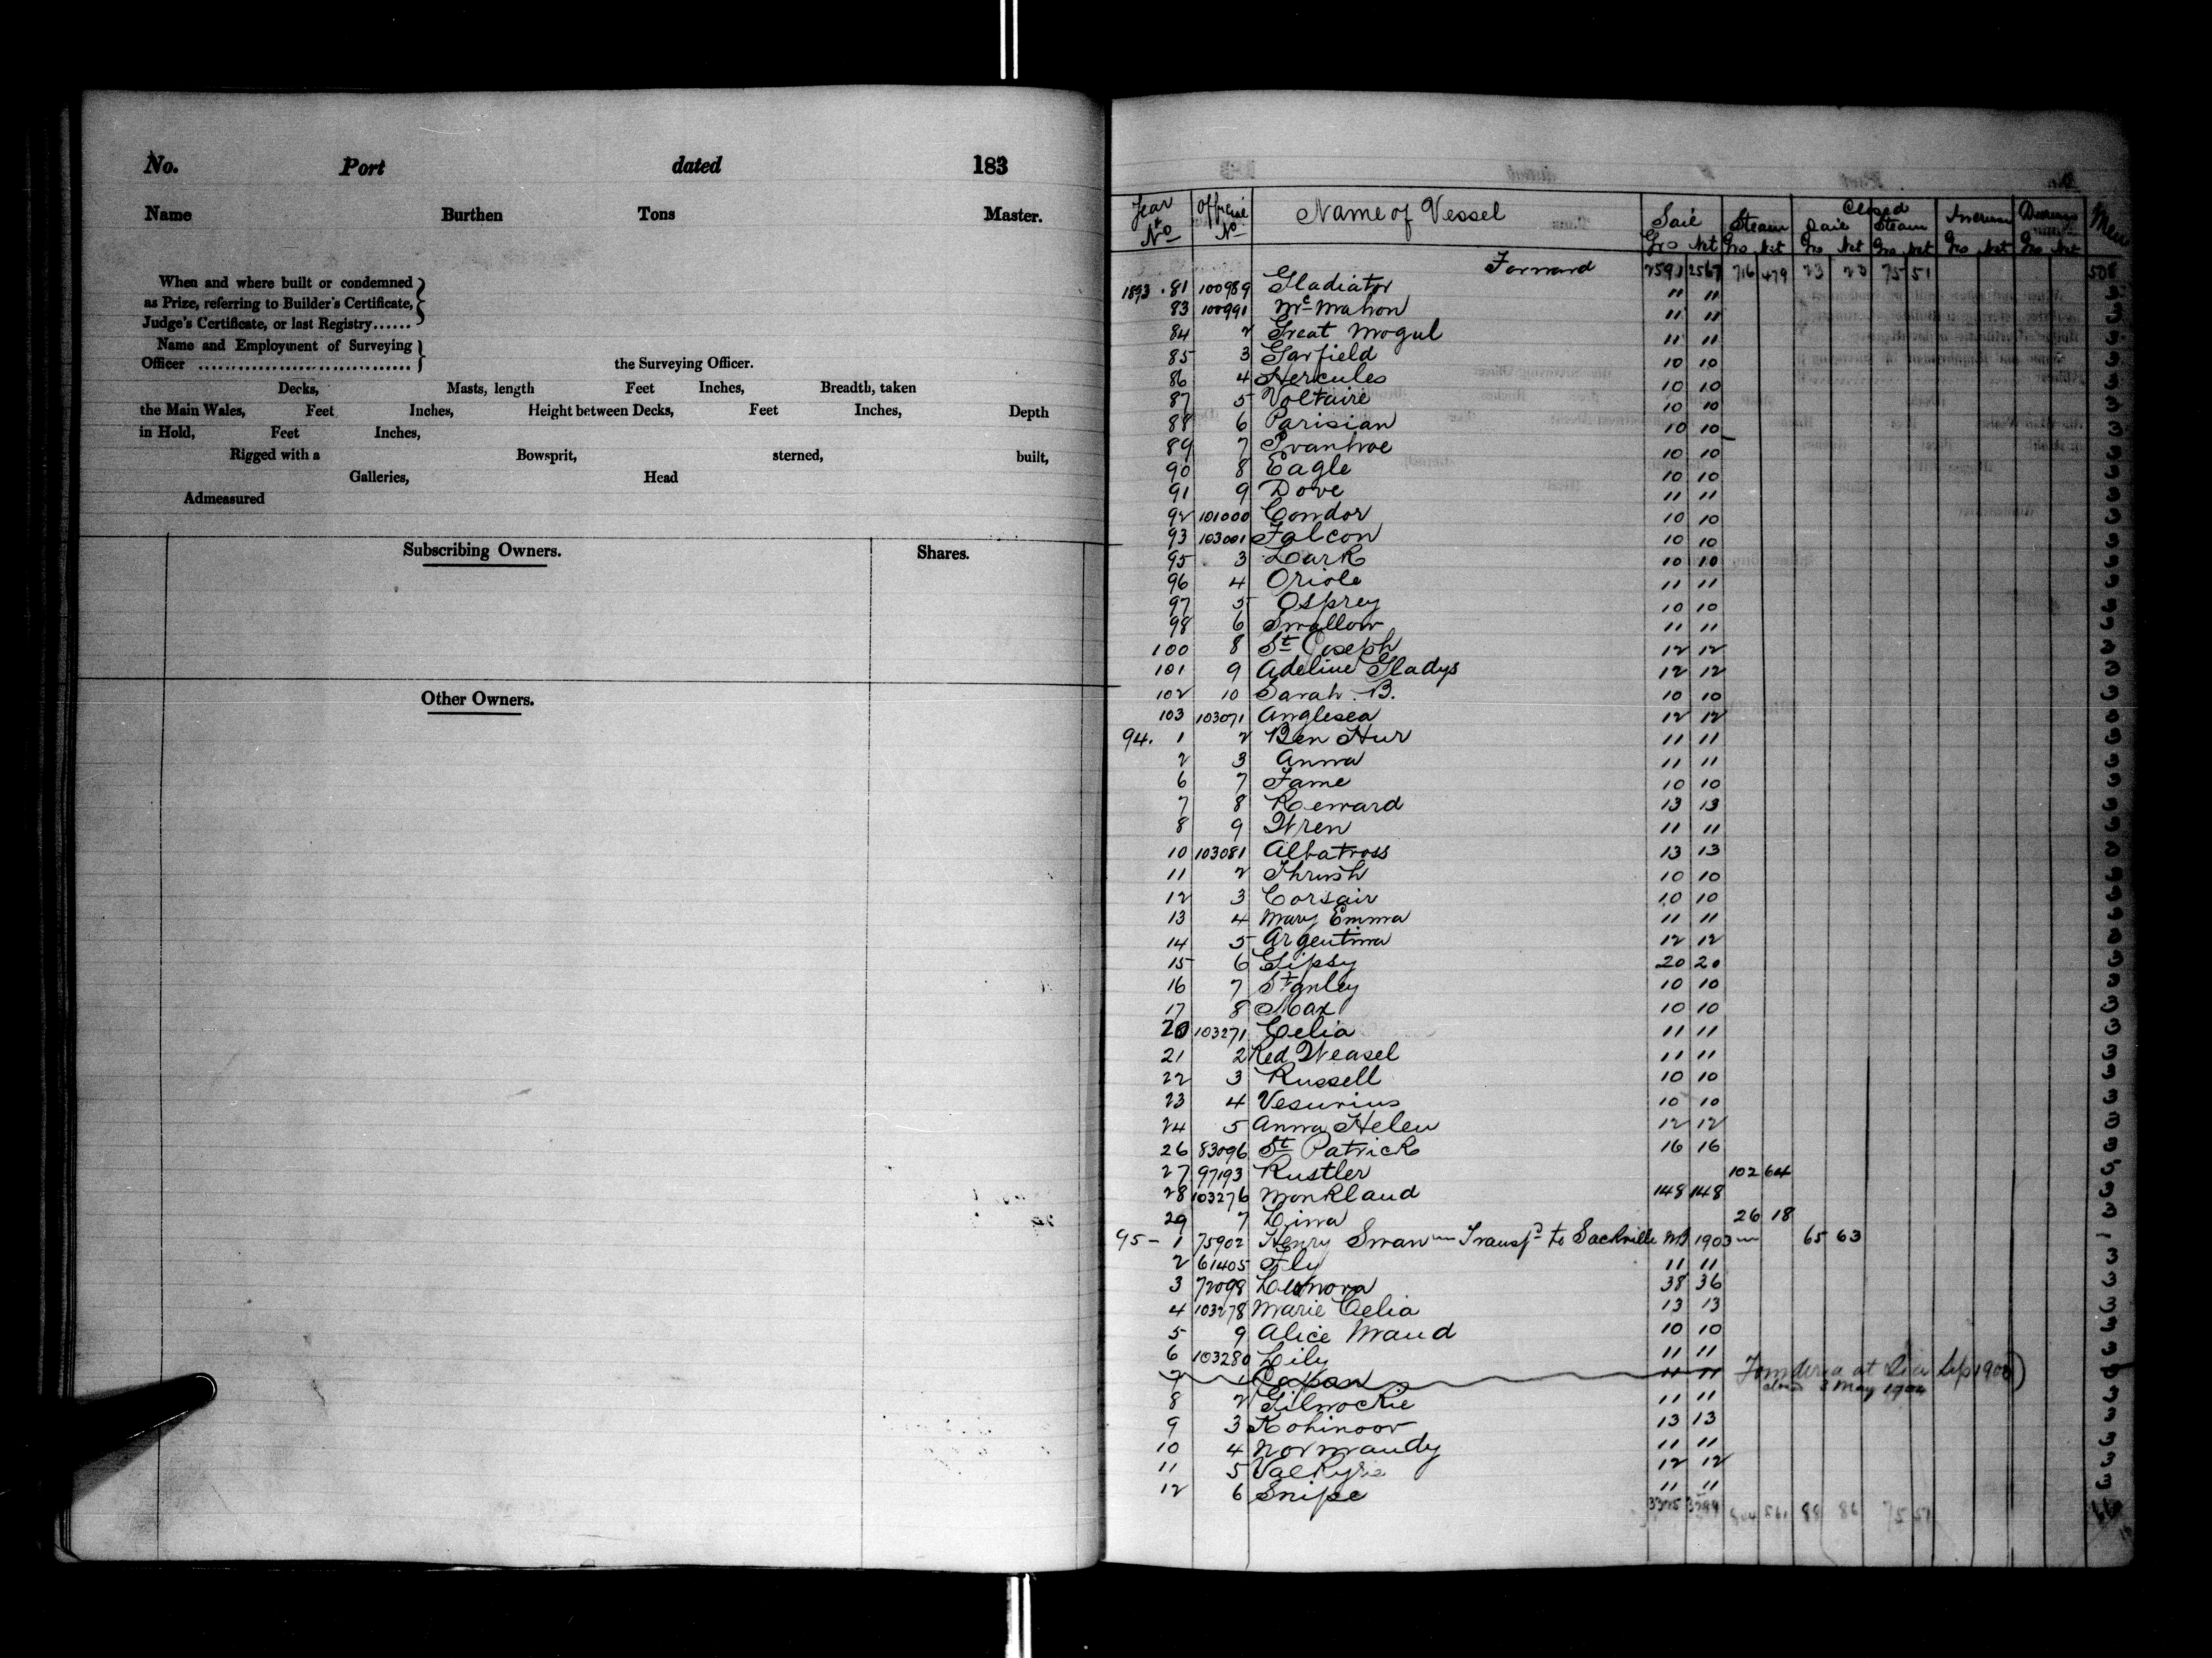 No. Port dated 183
Name Burthen Tons Master.
When and where built or condemned
as Prize, referring to Builder's Certificate,
Judge's Certificate, or last Registry......
Name and Employment of Surveying
Officer ................................ the Surveying Officer.
Decks, Masts, length Feet Inches, Breadth, taken
the Main Wales, Feet Inches, Height between Decks, Feet Inches, Depth
in Hold, Feet Inches,
Rigged with a Bowsprit, sterned, built,
Galleries, Head
Admeasured
Subscribing Owners. Shares.
Other Owners.
Year & No Official No Name of Vessel Sail Steam Closed Sail Steam Increase Men
Gro Net Gro Net Gro Net Gro Net Gro Net Gro Net
Forward 2591 2567 716 479 23 23 75 51 508
1893. 81 100989 Gladiator 11 11 3
83 100991 Mc Mahon 11 11 3
84 2 Great Mogul 11 11 3
85 3 Garfield 10 10 3
86 4 Hercules 10 10 3
87 5 Voltaire 10 10 3
88 6 Parisian 10 10 3
89 7 Ivanhoe 10 10 3
90 8 Eagle 10 10 3
91 9 Dove 11 11 3
92 101000 Condor 10 10 3
93 103001 Falcon 10 10 3
95 3 Lark 10 10 3
96 4 Oriole 11 11 3
97 5 Osprey 10 10 3
98 6 Swallow 11 11 3
100 8 St Joseph 12 12 3
101 9 Adeline Gladys 12 12 3
102 10 Sarah B. 10 10 3
103 103071 Anglesea 12 12 3
94. 1 2 Ben Hur 11 11 3
2 3 Anna 11 11 3
6 7 Fame 10 10 3
7 8 Reward 13 13 3
8 9 Wren 11 11 3
10 103081 Albatross 13 13 3
11 2 Thrush 10 10 3
12 3 Corsair 10 10 3
13 4 Mary Emma 11 11 3
14 5 Argentina 12 12 3
15 6 Gipsy 20 20 3
16 7 Stanley 10 10 3
17 8 Max 10 10 3
20 103271 Celia 11 11 3
21 2 Red Weasel 11 11 3
22 3 Russell 10 10 3
23 4 Vesuvius 10 10 3
24 5 Anna Helen 12 12 3
26 83096 St Patrick 16 16 3
27 97193 Rustler 102 64
28 103276 Monkland 148 148 3
29 7 Lina 26 18 3
95 - 1 75902 Henry Swan Transfd to Sackville NB 1903 65 63
2 61405 Fly 11 11 3
3 72098 Leonora 38 36 3
4 103278 Marie Celia 13 13 3
5 9 Alice Maud 10 10 3
6 103280 Lily 11 11 3
7 1 11 11 at Sea Sep 1900)
3 May 1904
8 2 Gilnockie 11 11 3
9 3 Kohinoor 13 13 3
10 4 Normandy 11 11 3
11 5 Valkyrie 12 12 3
12 6 Snipe 11 11 3
88 86 75 51